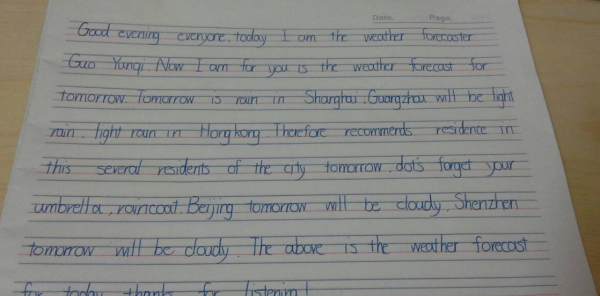 Date. Page.
Good evening everyone. today I am the weather forecaster
Guo Yunqi. Now I am for you is the weather forecast for
tomorrow. Tomorrow is rain in Shanghai. Guangzhou will be light
rain. light rain in Hong kong. Therefore recommends residence in
this several residents of the city tomorrow. dot's forget your
umbrella, raincoat. Beijing tomorrow will be cloudy. Shenzhen
tomorrow will be cloudy. The above is the weather forecast
for today thanks for listening!